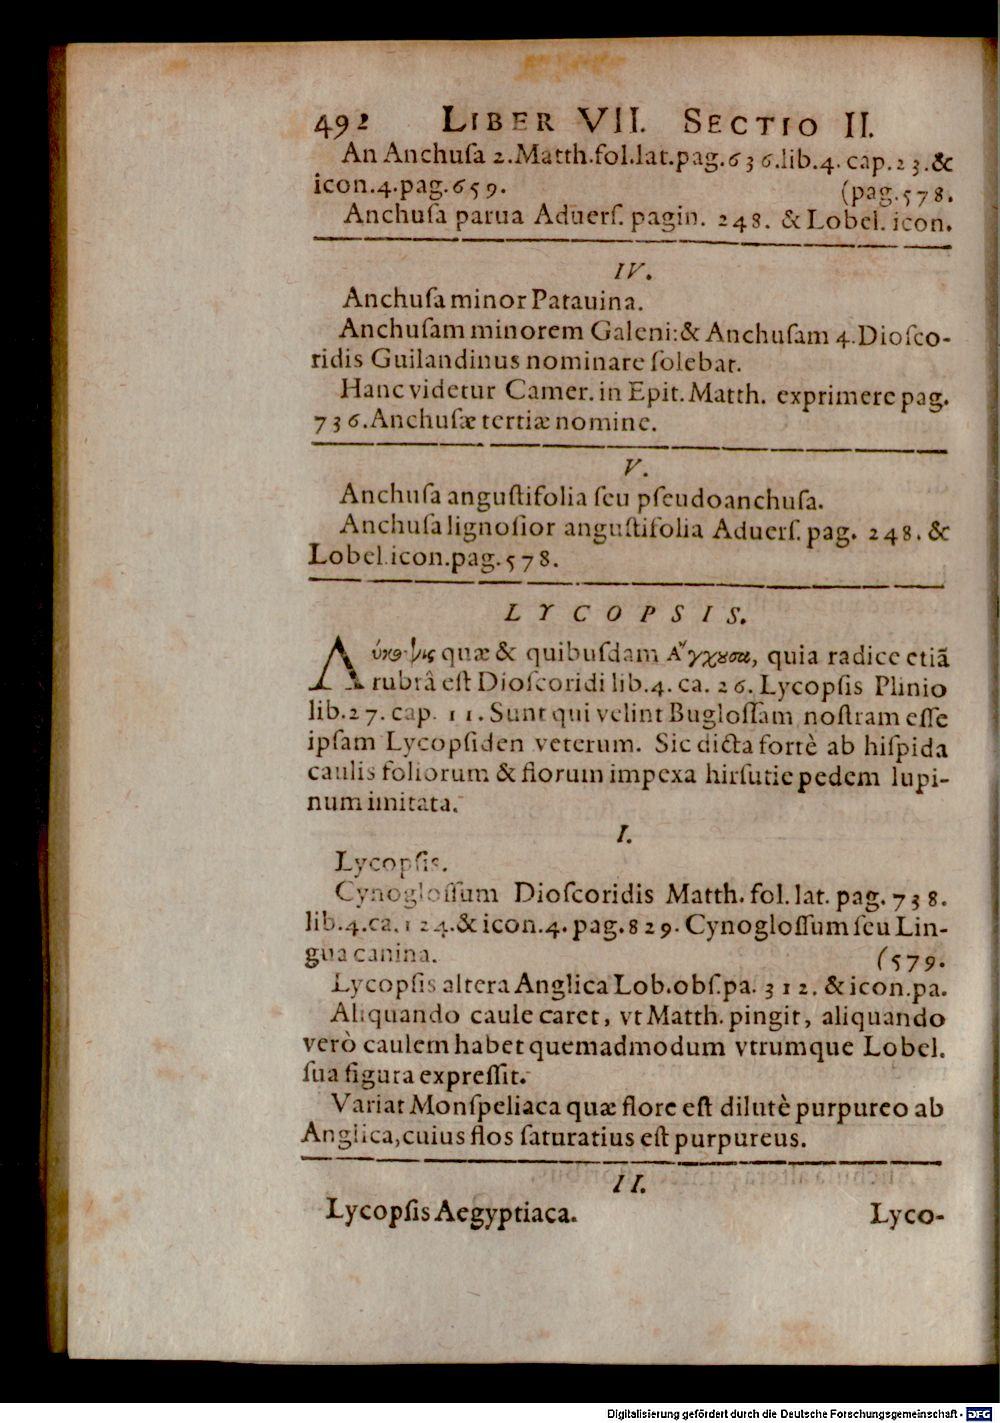 492 LIBER VII. SECTIO II.
An Anchuſa 2.Matth.fol.lat.pag.636.lib.4.cap.23.&
icon.4.pag.659. (pag.578.
Anchuſa parua Aduerſ. pagin. 248. & Lobel. icon.
IV.
Anchuſa minor Patauina.
Anchuſam minorem Galeni:& Anchuſam 4.Dioſco-
ridis Guilandinus nominare ſolebat.
Hanc videtur Camer. in Epit. Matth. exprimere pag.
736.Anchuſæ tertiæ nomine.
V.
Anchuſa anguſtifolia ſeu pſeudoanchuſa.
Anchuſa lignoſior anguſtifolia Aduerſ. pag. 248. &
Lobel.icon.pag.578.
LYCOPSIS.
Λύκοψις quæ & quibuſdam Ἄγχουσα, quia radice etiã
rubrâ eſt Dioſcoridi lib.4. ca. 26. Lycopſis Plinio
lib.27. cap. 11. Sunt qui velint Bugloſſam noſtram eſſe
ipſam Lycopſiden veterum. Sic dicta fortè ab hiſpida
caulis foliorum & florum impexa hirſutie pedem lupi-
num imitata.
I.
Lycopſis.
Cynogloſſum Dioſcoridis Matth. fol. lat. pag. 738.
lib.4.ca.124.& icon.4. pag.829. Cynogloſſum ſeu Lin-
gua canina. (579.
Lycopſis altera Anglica Lob.obſ.pa. 312. & icon.pa.
Aliquando caule caret, vt Matth. pingit, aliquando
verò caulem habet quemadmodum vtrumque Lobel.
ſua figura expreſſit.
Variat Monſpeliaca quæ flore eſt dilutè purpureo ab
Anglica,cuius flos ſaturatius eſt purpureus.
II.
Lycopſis Aegyptiaca. Lyco-
Digitalisierung gefördert durch die Deutsche Forschungsgemeinschaft - DFG